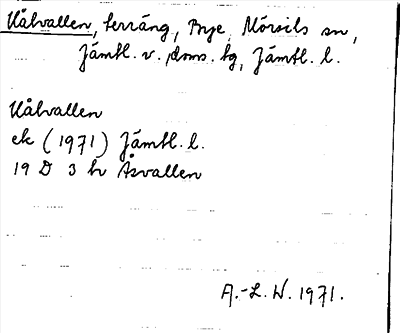 Kålvallen, terräng, Bye, Mörsils sn,
Jämtl. v. doms. tg, Jämtl. l.
Kålvallen
ek (1971) Jämtl. l.
19 D 3 h Åsvallen
A.-L. W. 1971.